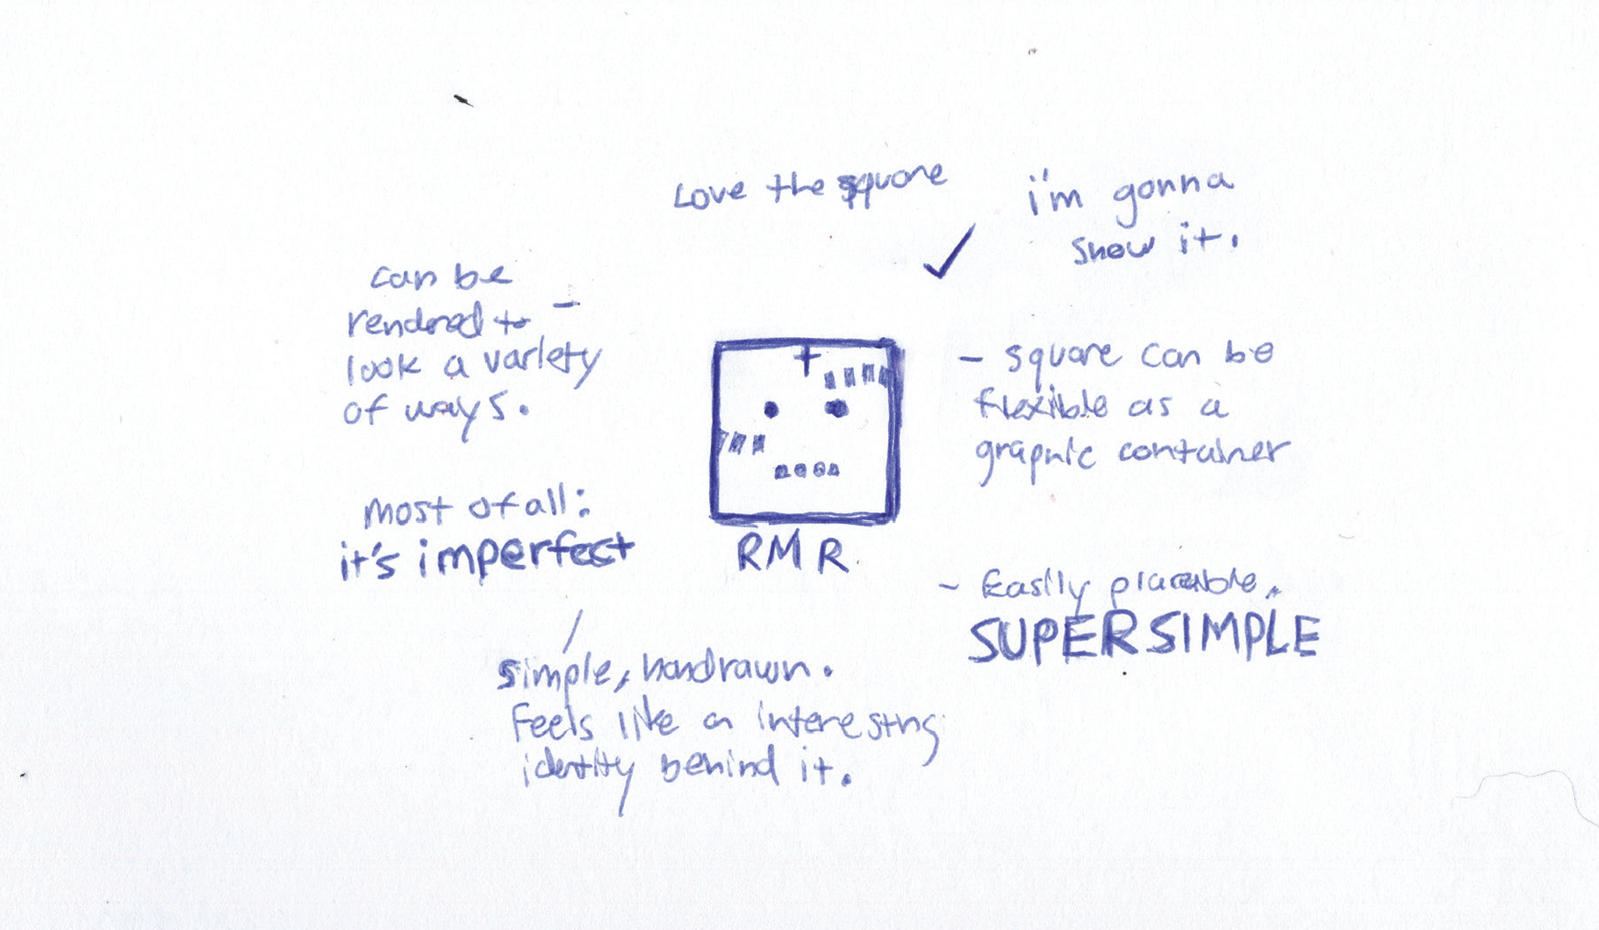 Love the square
i'm gonna
show it.
can be
rendred to
look a variety
of ways.
- square can be
flexible as a
graphic container
most of all:
it's imperfect
RMR
- Easily placeable.
SUPER SIMPLE
simple, handrawn.
Feels like a interesting
identity behind it.